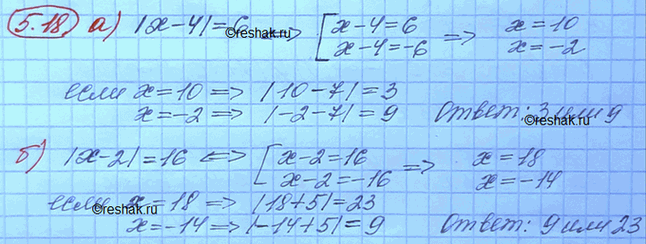 5.18. а) |x-4|=6 <=> [ x-4=6 => x=10
x-4=-6 x=-2
если x=10 => |10-7|=3
x=-2 => |-2-7|=9 Ответ: 3 или 9
б) |x-2|=16 <=> [ x-2=16 => x=18
x-2=-16 x=-14
если x=18 => |18+5|=23
x=-14 => |-14+5|=9 Ответ: 9 или 23
©reshak.ru
©reshak.ru
©reshak.ru